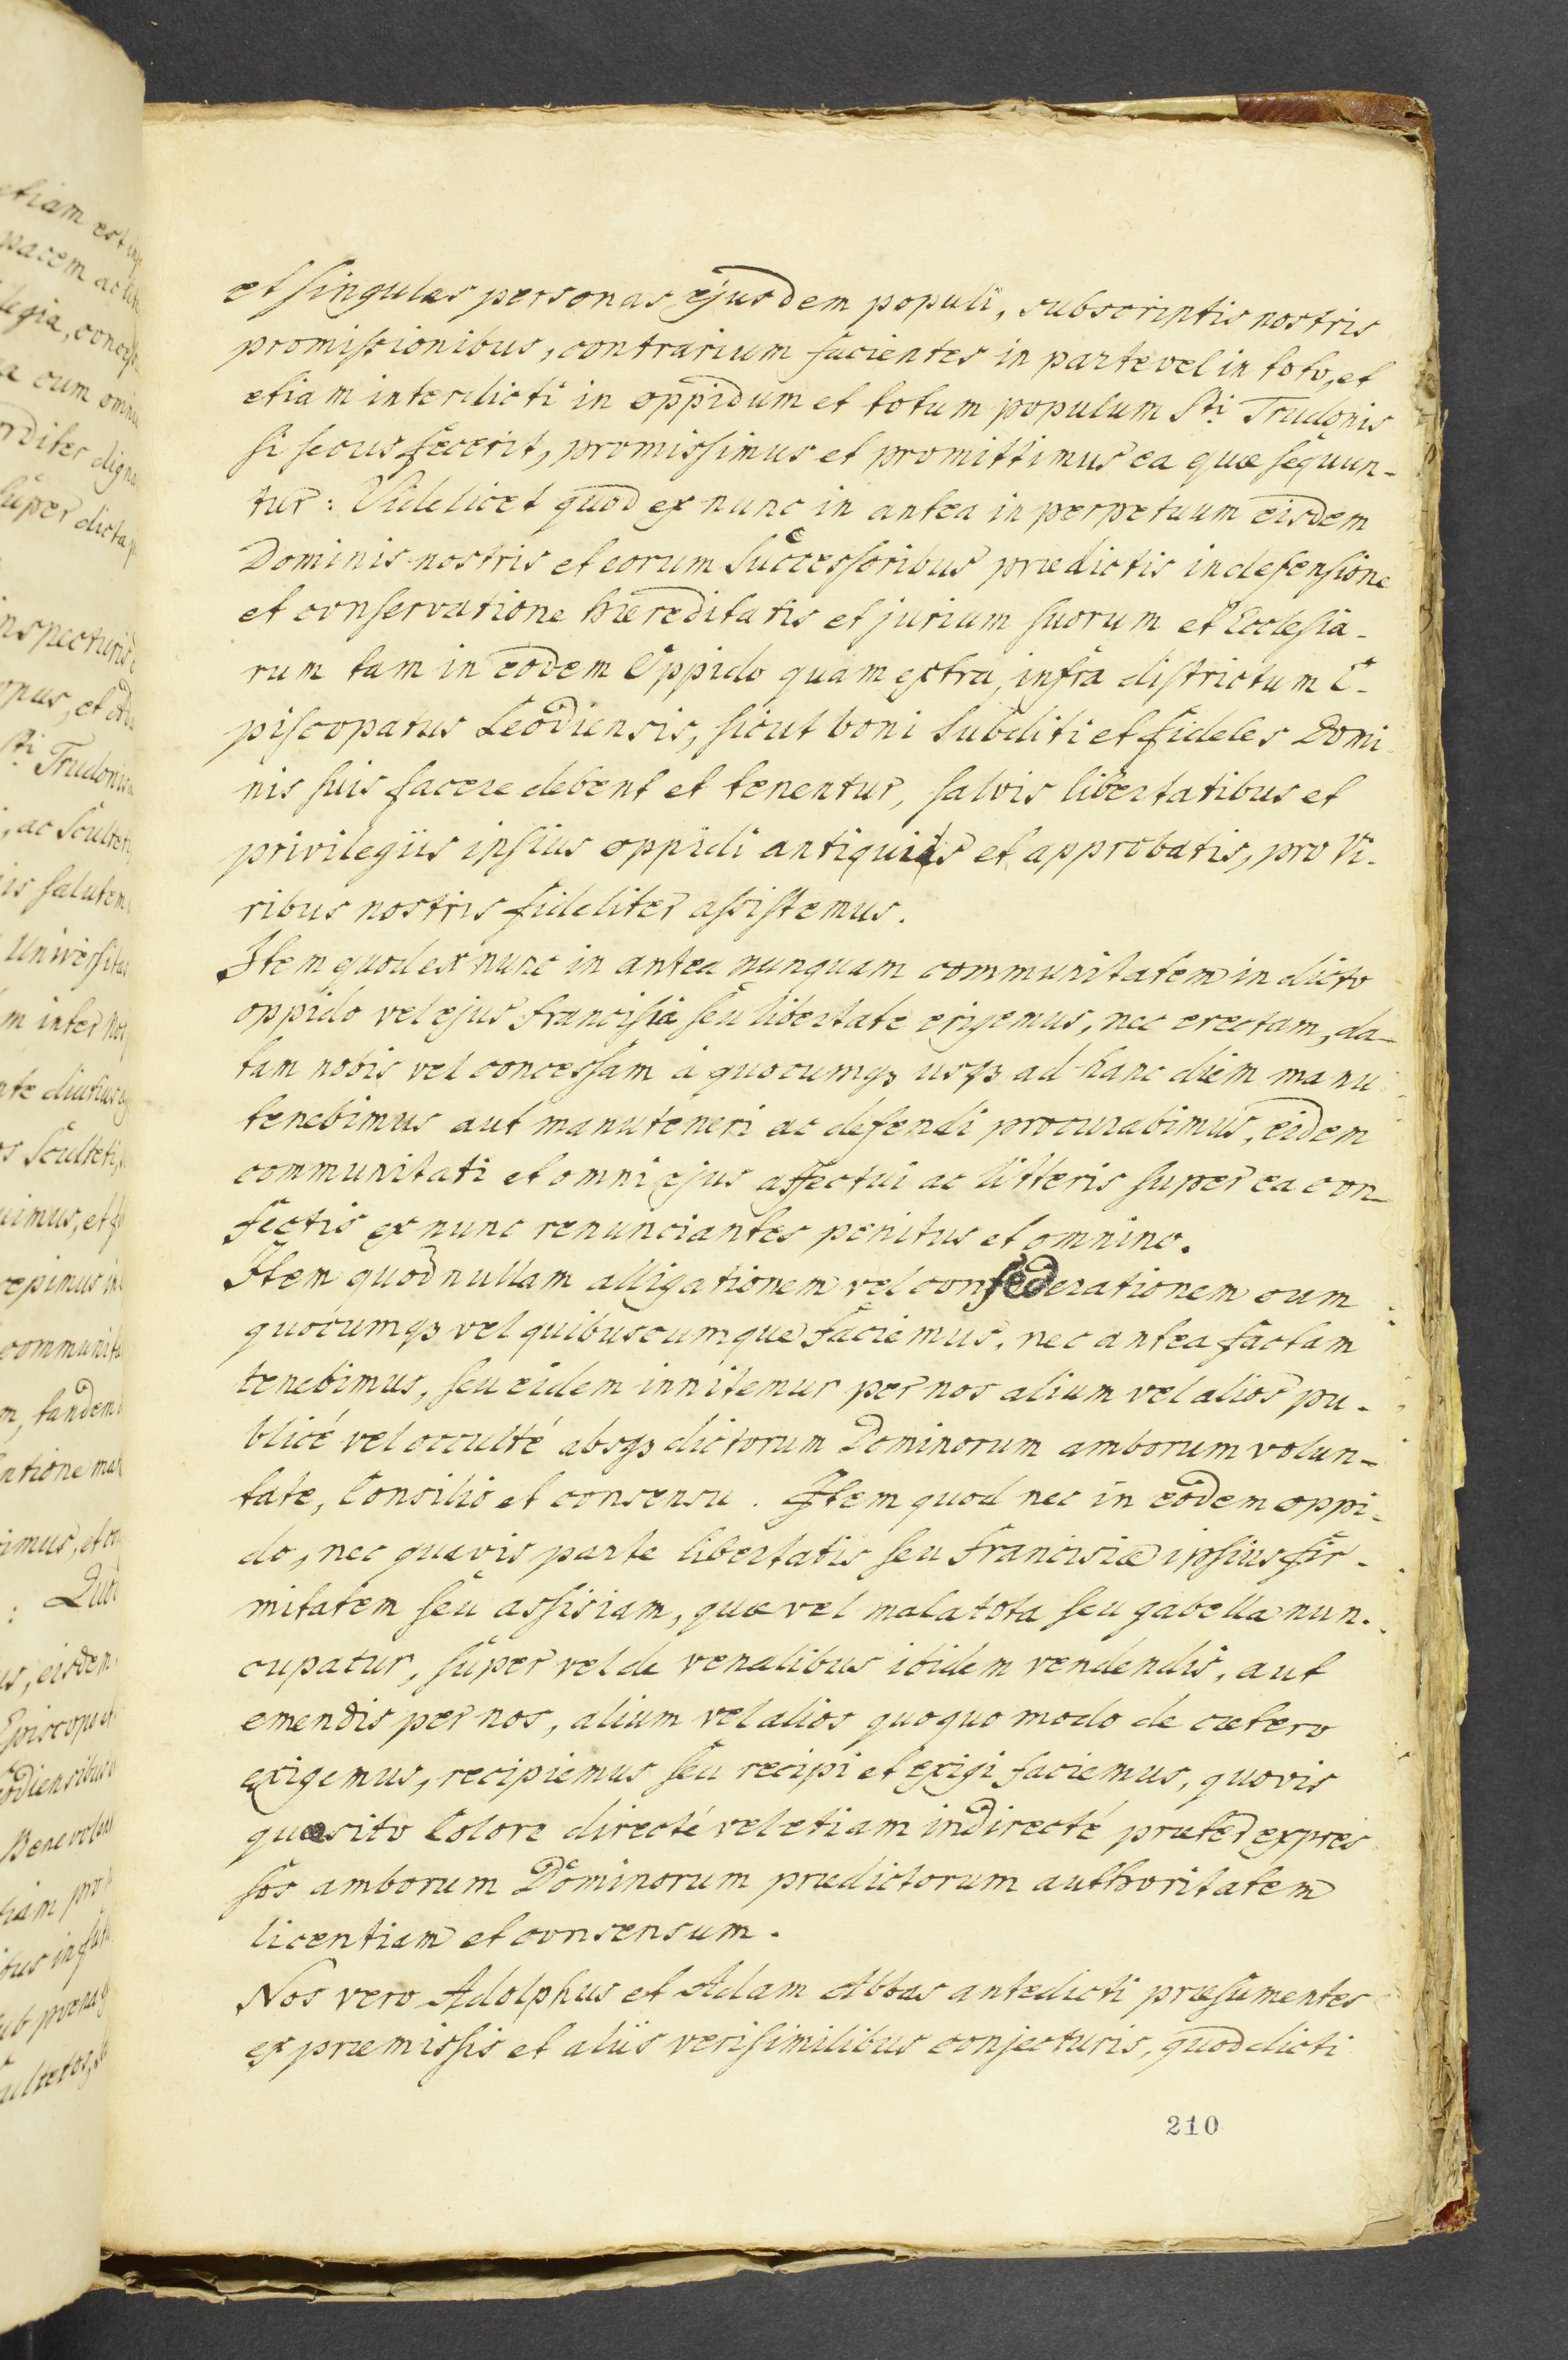 etiam est
pacem ac
legia,
a cum omni
digna
super dicta
inspecturis
opus, et
Sti Trudonis
, ac Sculteti
is salutem
Universitas
m inter nos
te diutius
s Sculteti,
uimus, et
cepimus in
communita
m, tandem
ntione
imus, et
: Quod
us, eisdem
Episcopo et
odiensibus
Benevolen
tiam pro
sub poena
et singulas personas ejusdem populi, subscriptis nostris
promissionibus, contrarium facientes in parte vel in toto, et
etiam interdicti in oppidum et totum populum Sti Trudonis
si secus fecerit, promissimus et promittimus ea quæ sequun-
tur: Videlicet quod ex nunc in antea in perpetuum eisdem
Dominis nostris et eorum successoribus prædictis in defensione
et conservatione hæreditatis et jurium suorum et Ecclesia-
rum tam in eodem Oppido quam extra, infra districtum E-
piscopatus Leodiensis, sicut boni subditi et fideles Domi
nis suis facere debent et tenentur, salvis libertatibus et
privilegiis ipsius oppidi antiquis et approbatis, pro vi-
ribus nostris fideliter assistemus.
Item quod ex nunc in antea nunquam communitatem in dicto
oppido vel ejus francisiâ seu libertate erigemus, nec erectam, da-
tam nobis vel concessam a quocumqꝫ usqꝫ ad hanc diem manu
tenebimus aut manuteneri ac defendi procurabimus, eidem
communitati et omni ejus affectui ac litteris super ea con-
fectis ex nunc renunciantes penitus et omnino.
Item quod nullam alligationem vel confederationem cum
quocumqꝫ vel quibuscumque faciemus, nec antea factam
tenebimus, seu eidem innitemur per nos alium vel alios pu-
blicé vel occulté absqꝫ dictorum Dominorum amborum volun-
tate, Consilio et consensu. Item quod nec in eodem oppi-
do, nec quavis parte libertatis seu francisiæ ipsius fir-
mitatem seu assisiam, quæ vel malatota seu gabella nun-
cupatur, super vel de venalibus ibidem vendendis, aut
emendis per nos, alium vel alios quoquo modo de cætero
exigemus, recipiemus seu recipi et exigi faciemus, quovis
quæsito Colore directé vel etiam indirecté præter expres
sos amborum Dominorum prædictorum authoritatem
licentiam et consensum.
Nos vero Adolphus et Adam Abbas antedicti præsumentes
ex præmissis et aliis verisimilibus conjecturis, quod dicti
210